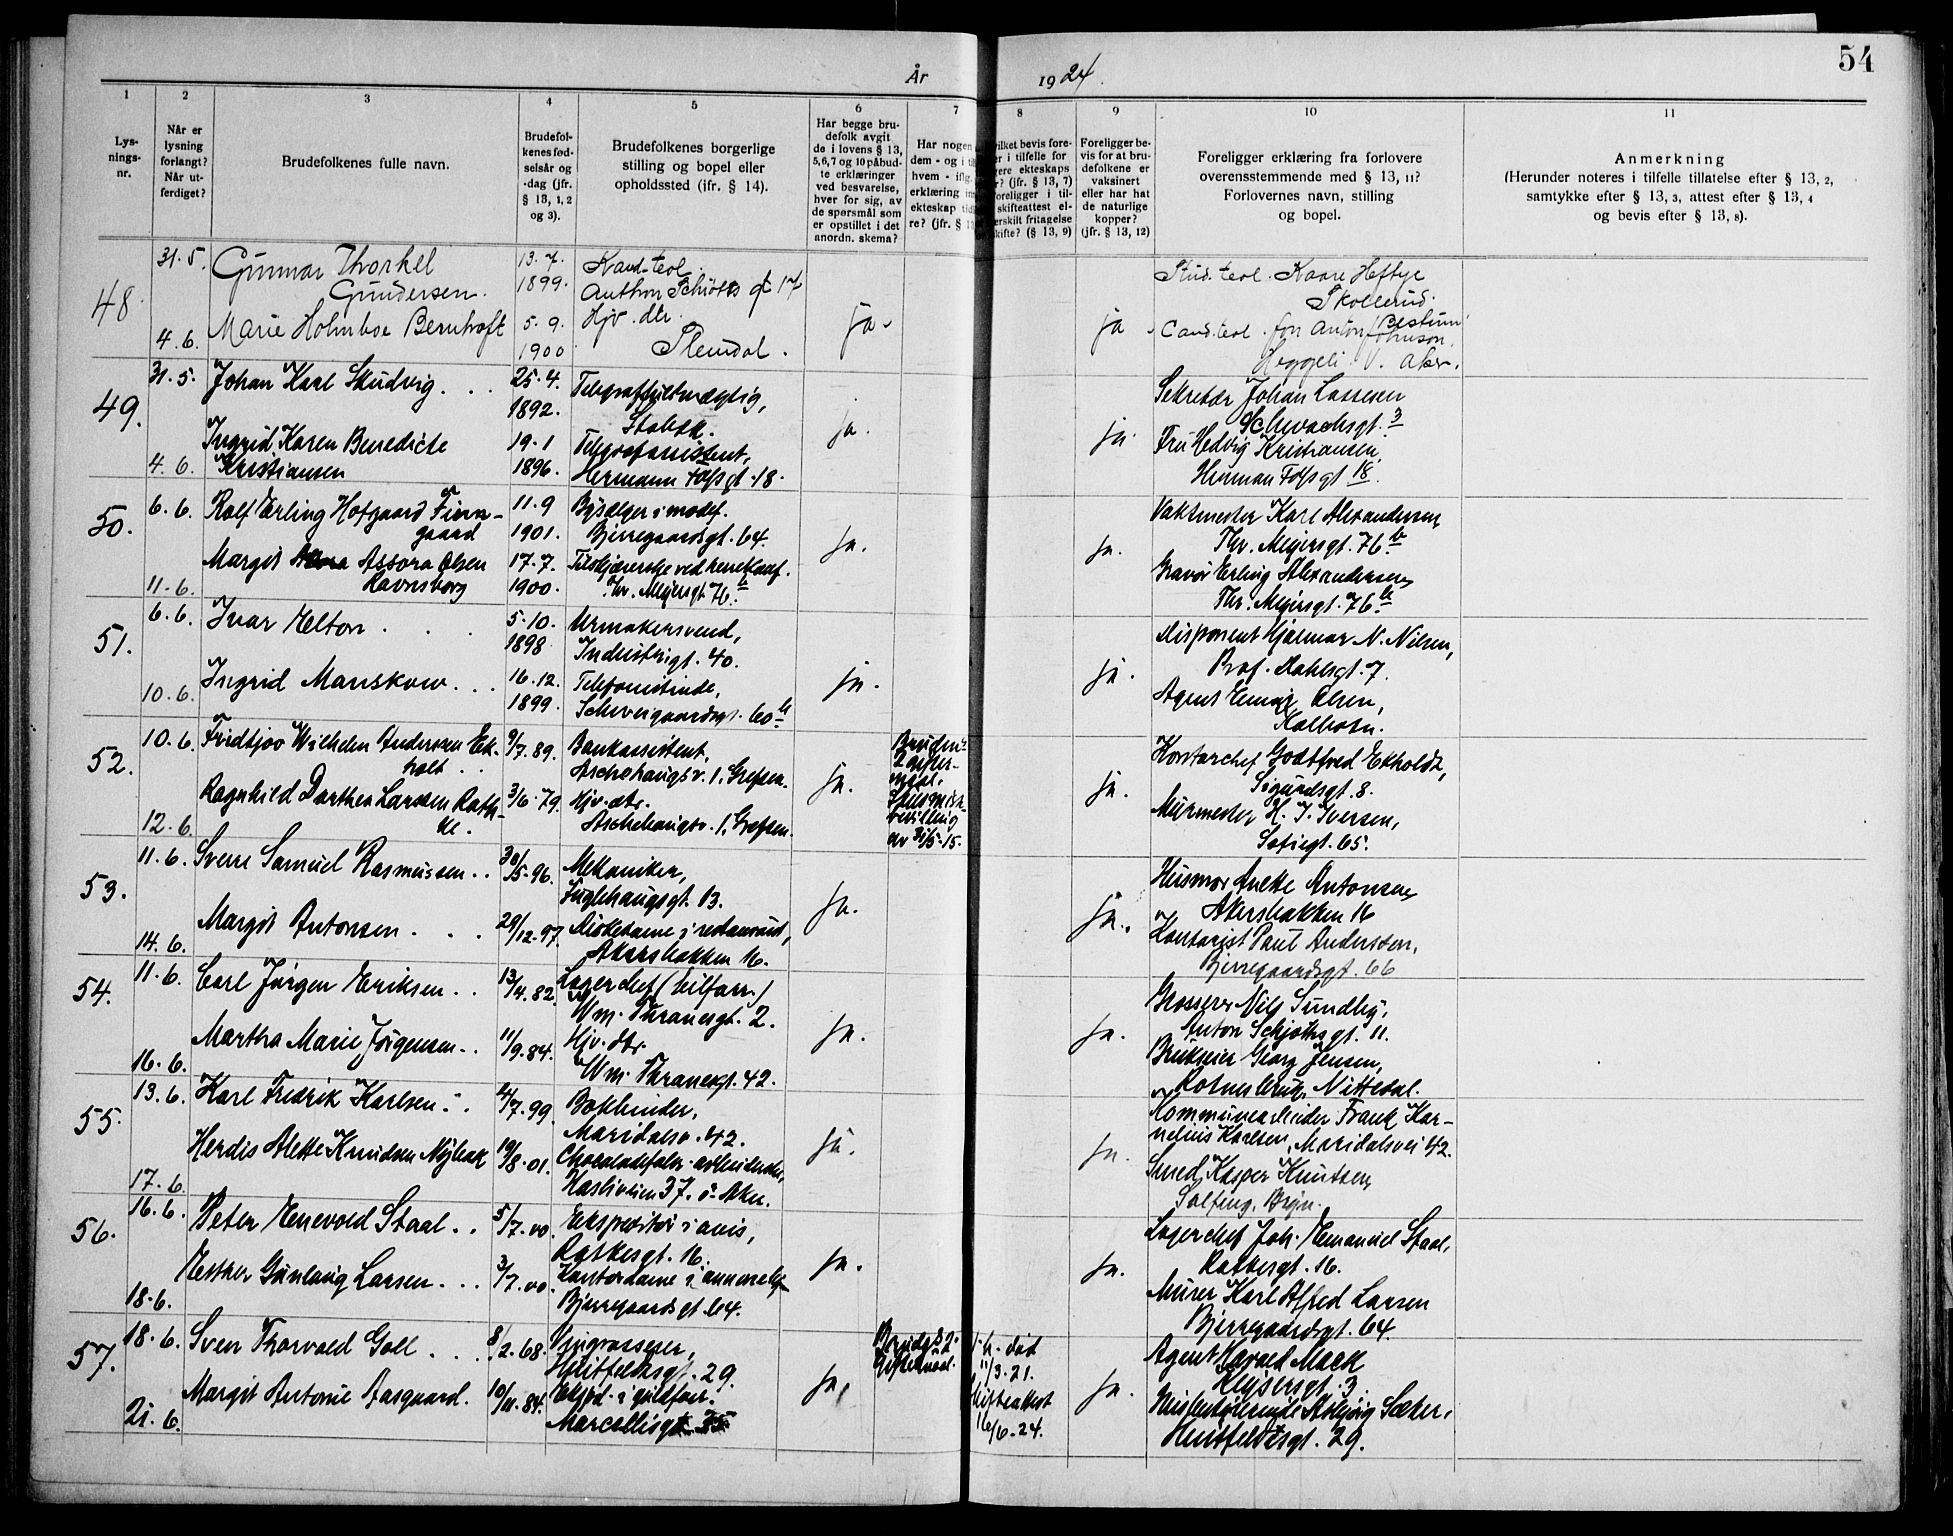 54
År 1924.
1 2 3 4 5 6 7 8 9 10 11
Lys-
nings-
nr.
Når er
lysning
forlangt?
Når ut-
ferdiget?
Brudefolkenes fulle navn.
Brudefol-
kenes fød-
selsår og
-dag (jfr.
§ 13, 1, 2
og 3).
Brudefolkenes borgerlige
stilling og bopel eller
opholdssted (ifr. § 14).
Har begge bru-
defolk avgit
de i lovens § 13,
5, 6, 7 og 10 påbud-
te erklæringer
ved besvarelse,
hver for sig, av
de spørsmål som
er opstillet i det
anordn. skema?
Har nogen
dem - og i
hvem - iflg.
erklæring
ekteskap
re? (jfr. §
bevis fore-
i tilfelle for
ekteskaps
(jfr. § 13, 7)
i til-
skifteattest el-
fritagelse
(§ 13, 9)
Foreligger be-
vis for at bru-
defolkene er
vaksinert
eller har hat
de naturlige
kopper?
(jfr. § 13, 12)
Foreligger erklæring fra forlovere
overensstemmende med § 13, 11?
Forlovernes navn, stilling
og bopel.
Anmerkning
(Herunder noteres i tilfelle tillatelse efter § 13, 2,
samtykke efter § 13, 3, attest efter § 13, 4
og bevis efter § 13, 8).
48 31.5. Gunnar Thorkel
Gundersen.
13.7.
1899.
Kand. teol.
Anthon Schiøtts gt 17
4.6. Marie Holmboe Bernhoft
5.9.
1900
Hjv. dtr.
Slemdal.
ja. ja.
Stud. teol. Kaare Heftye
Skollerud.
Cand. teol. Jon Anton Johnson
Heggeli V. Aker.
49. 31.5. Johan Karl Skudvig
25.4.
1892.
Stabek.
4.6. Ingrid Karen Benedicte
Kristiansen
19.1
1896.
Telegrafassistent,
Hermann Fossgt. 18.
ja. ja.
Sekretær Johan Lassesen
Schwachsgt. 3
Fru Hedvig Kristiansen,
Herman Fossgt 18.
50. 6.6. Rolf Erling Hofgaard Finn-
gaard
11.9
1901.
Bjerregaardsgt. 64.
11.6. Margit Assora Olsen
Ravnsborg
17.7.
1900.
Thv. Meyersgt 76b.
ja. ja.
Vaktmester Karl Alexandersen,
Thv. Meyersgt. 76b
Gravør Erling Alexandersen,
Thv. Meyersgt. 76b
51. 6.6. Ivar Elton
5.10.
1898
Urmakersvend,
Industrigt. 40.
10.6. Ingrid Manskow
16.12.
1899.
Telefonistinde,
Schweigaardsgt. 60b
ja. ja.
Disponent Hjalmar N. Nilsen,
Prof. Dahlsgt. 7.
Agent Einar Olsen,
Kolbotn.
52. 10.6. Fridtjov Wilhelm Andersen Ek-
holt
9/7.89.
Bankassistent,
Aschehougsv. 1, Grefsen.
12.6. Ragnhild Dorthea Larssen Rath-
ke.
3/6.79.
Hjv. dtr.
Aschehougsv. 1, Grefsen.
ja.
Brudens
2 gifter-
maal.
Skilsmisse-
bevilling
av 31/5-15.
ja.
Kontorchef Godtfred Ekholdt,
Sigurdsgt. 8.
Murmester H. J. Iversen,
Sofiegt. 65.
53. 11.6. Sverre Samuel Rasmussen
30/5.96.
Mekaniker,
Fuglehaugsgt. 13.
14.6. Margit Antonsen
29/12.97.
Diskedame i restaurant,
Akersbakken 16.
ja. ja.
Husmor Anette Antonsen,
Akersbakken 16
Kontorist Paul Anderssen,
Bjerregaardsgt. 66
54. 11.6. Carl Jørgen Eriksen
13/4.82.
Lagerchef (bilforr.)
Wm. Thranesgt. 2.
16.6. Martha Marie Jørgensen
11/9.84.
Hjv. dtr.
Wm. Thranesgt. 42.
ja. ja.
Grosserer Nils Sundby,
Anton Schjøthsgt. 11.
Brukseier Georg Jensen,
Rotnes bruk, Nittedal.
55. 13.6. Karl Fredrik Karlsen
4/7.99.
Bokbinder,
Maridalsv. 42.
17.6. Herdis Alette Knudsen Nybak
19/8.01.
Chocoladefabr. arbeiderske,
Hasliveien 37. Ø. Aker.
ja. ja.
Kommunearbeider Frank Kor-
nelius Karlsen, Maridalsvei 42.
Smed Kasper Knutsen,
Solfeng, Bryn.
56. 16.6. Peter Enevold Staal
5/7.00.
Ekspeditør i avis,
Ratkesgt. 16.
18.6. Esther Gunlaug Larsen
3/7.00.
Bjerregaardsgt. 64.
ja. ja.
Lagerchef Joh. Emanuel Staal,
Ratkesgt. 16.
Murer Karl Alfred Larsen
Bjerregaardsgt. 64.
57. 18.6. Sven Thorvald Goll
8/2.68.
Vingrosserer,
Huitfeldtsgt. 29.
21.6. Margit Antonie Aasgaard.
10/11.84.
Marselisgt. 35
ja.
Brudg.s 2.
giftermaal.
1. h. død
11/3.21.
Skifteattest
16/6.24.
ja.
Agent Harald Mack
Keysersgt. 3
Husbestyrerinde Asbjørg Sæter,
Huitfeldtsgt. 29.